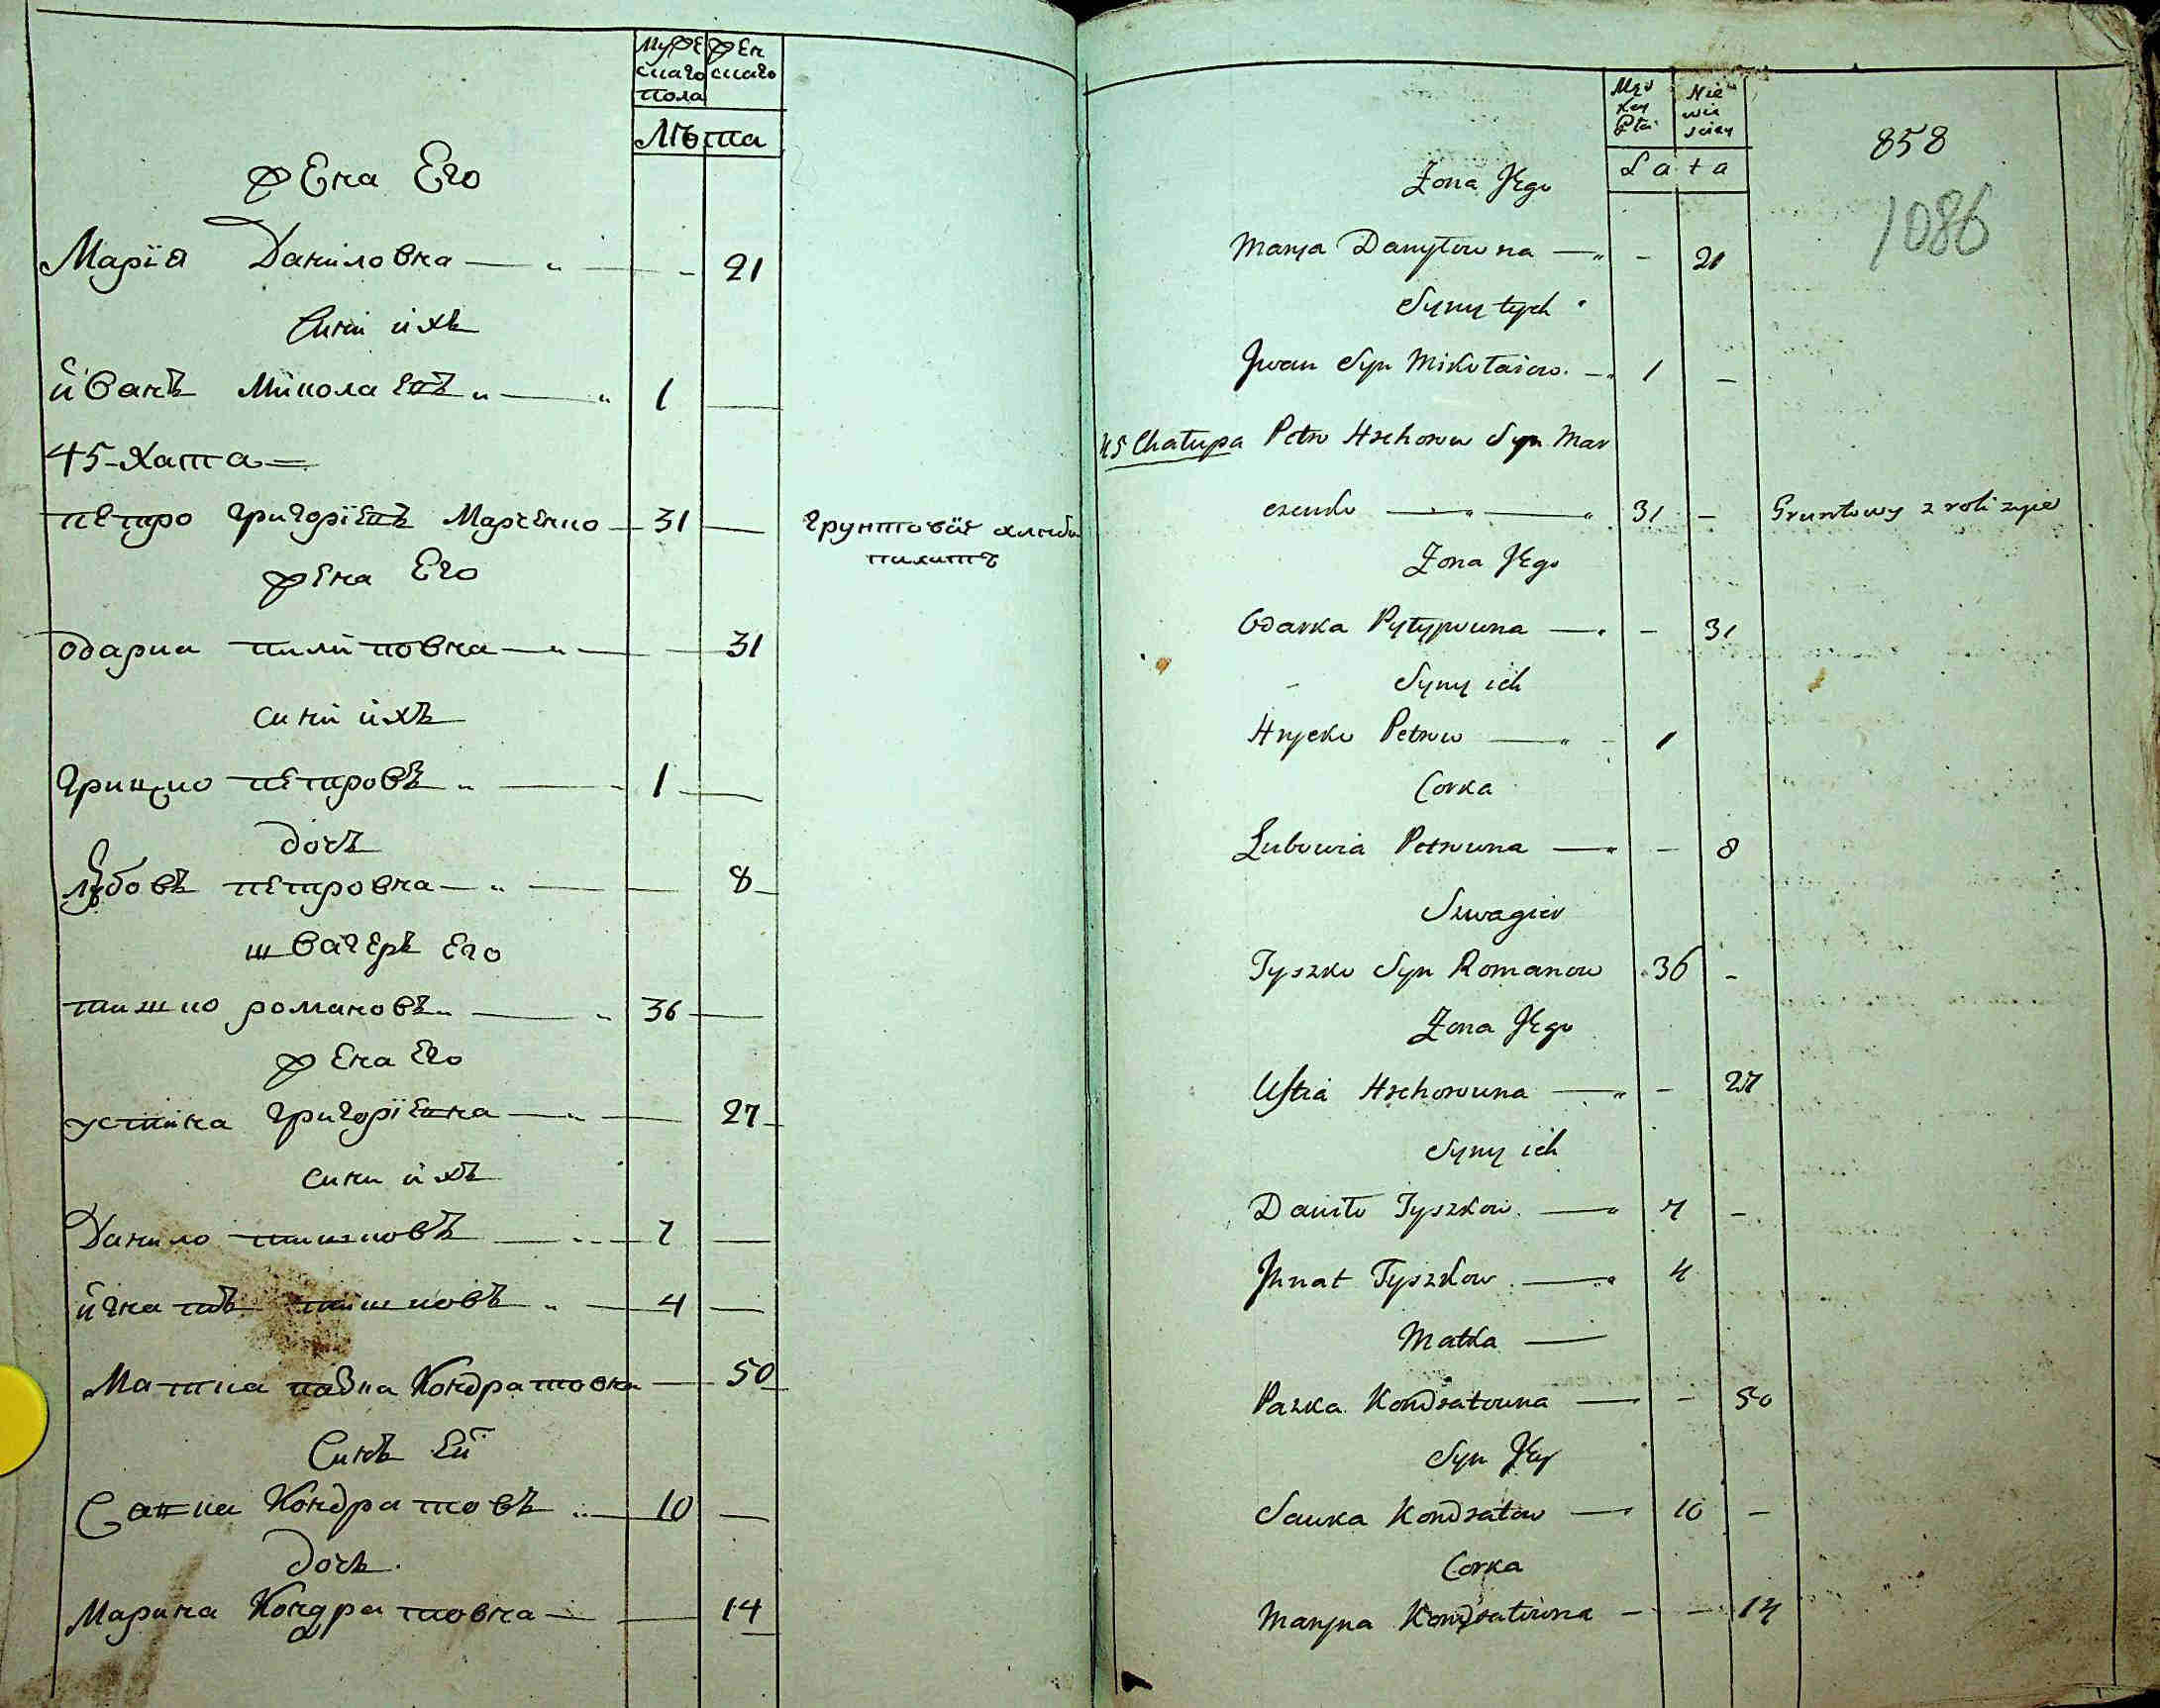 мужескаго пола женскаго
Лѣта
жена Его
Марія Даніловна 21
Сини ихъ
иванъ Миколаевъ 1
45 Хата
петро григоріевъ Марченко 31 грунтовой хлѣбо
пахитъ
жена Его
одарка пилиповна 31
сини ихъ
грицко петровъ 1
дочъ
лубовъ петровна 8
швагеръ Его
тишко романовъ 36
жена Его
устина григоріевна 27
сини ихъ
Данило тишковъ 7
игнатъ тишковъ 4
Матка пазка Кондратовна 50
Синъ Ей
Савка Кондратовъ 10
дочъ
Марина Кондратовна 14
Męzkey Płci Niewiesciey
Lata
858
1086
Zona Jego
Marya Danyłowna 21
Syny tych
Jwan Syn Mikołaiow 1
45 Chałupa Petro Hrehorow Syn Mar
czenko 31 Gruntowy z roli zyie
Zona Jego
Odarka Pyłypowna 31
Syny ich
Hrycko Petrow 1
Corka
Lubowia Petrowna 8
Szwagier
Tyszko Syn Romanow 36
Zona Jego
Ustia Hrehorowna 27
Syny ich
Daniło Tyszkow 7
Jhnat Tyszkow 4
Matka
Pazka Kondratowna 50
Syn Jey
Sawka Kondratow 10
Corka
Maryna Kondratowna 14